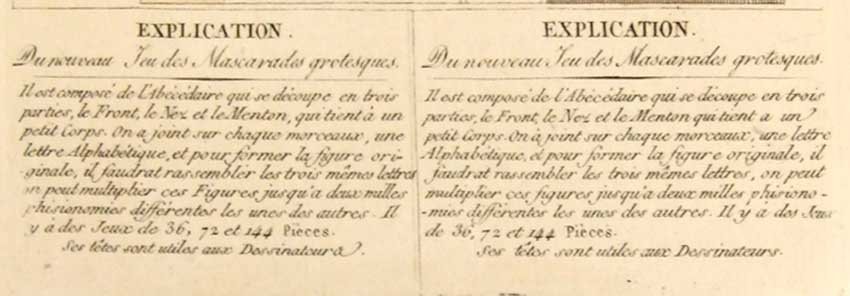 EXPLICATION.
Du nouveau Jeu des Mascarades grotesques.
Il est composé de l'Abécédaire qui se découpe en trois
parties, le Front, le Nez et le Menton, qui tient à un
petit Corps. On a joint sur chaque morceaux, une
lettre Alphabétique, et pour former la figure ori-
ginale, il faudrat rassembler les trois mêmes lettres
on peut multiplier ces Figures jusqu'a deux milles
phisionomies différentes les unes des autres. Il
y a des Jeux de 36, 72 et 144 Pièces.
Ses têtes sont utiles aux Dessinateurs.
EXPLICATION.
Du nouveau Jeu des Mascarades grotesques.
Il est composé de l'Abécédaire qui se découpe en trois
parties, le Front, le Nez et le Menton qui tient a un
petit Corps. On à joint sur chaque morceaux, une lettre
Alphabétique, et pour former la figure originale, il
faudrat rassembler les trois mêmes lettres, on peut
multiplier ces figures jusqu'a deux milles phisiono-
-mies différentes les unes des autres. Il y a des Jeux
de 36, 72 et 144 Pièces.
Ses têtes sont utiles aux Dessinateurs.